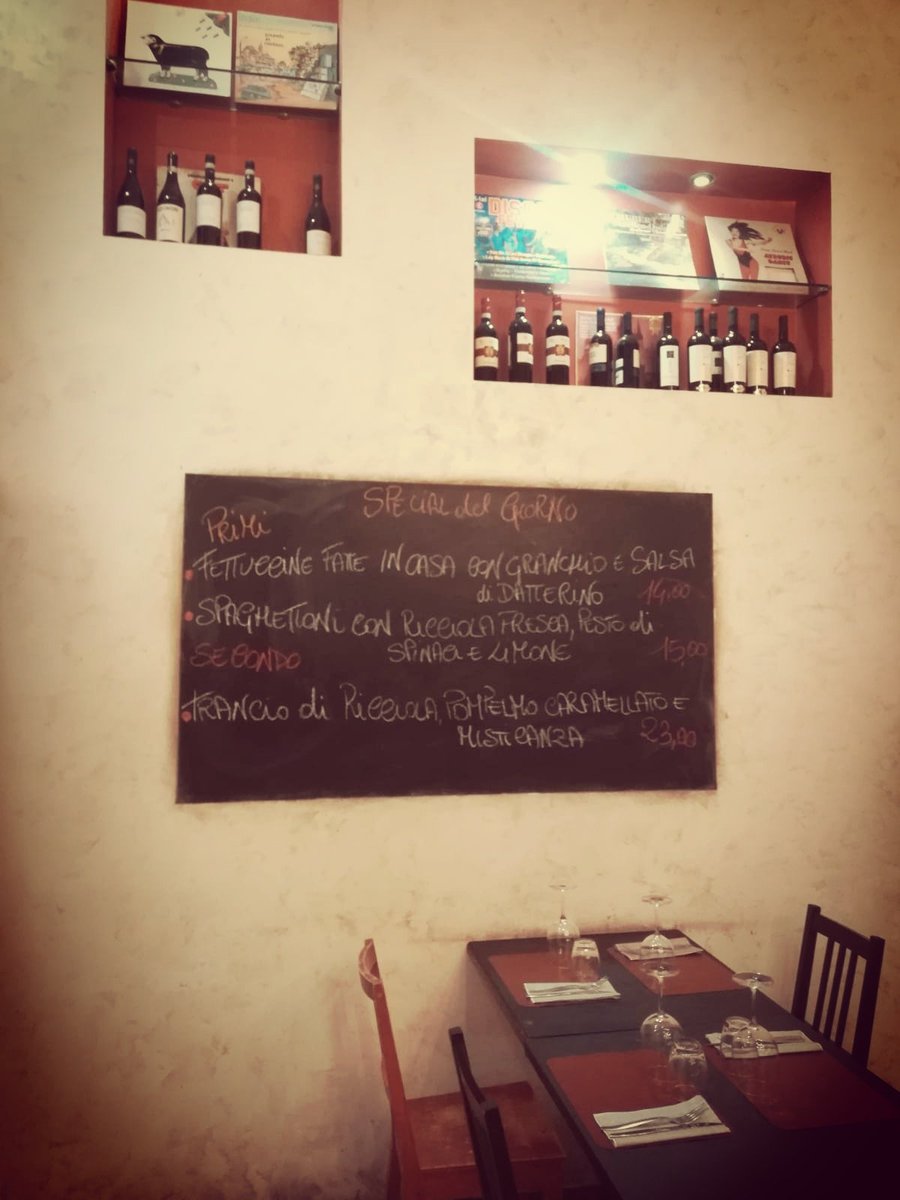 SPECIAL del GIORNO
PRIMI
FETTUCCINE FATTE IN CASA CON GRANCHIO E SALSA
di DATTERINO 14,00
SPAGHETTONI CON RICCIOLA FRESCA, PESTO di
SPINACI E LIMONE 15,00
SECONDO
TRANCIO di RICCIOLA, POMPELMO CARAMELLATO E
MISTICANZA 23,00